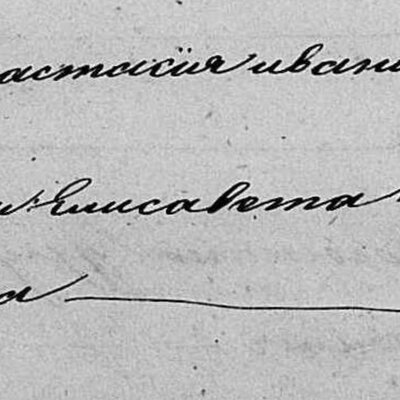 астасія ивани
и Елисавета
а